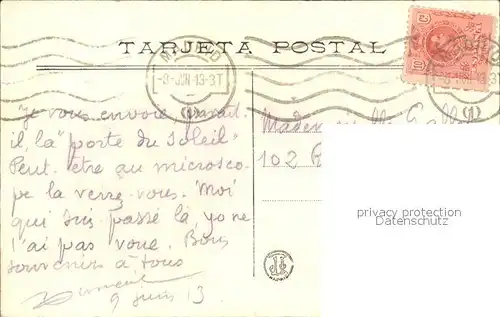 TARJETA POSTAL
MADRID
-8-JUN 13-3T
(1)
Je vous envoie, parait-
il, la "porte du Soleil".
Peut être au microsco-
pe la verrez-vous. Moi
qui suis passé là, je ne
l'ai pas vue. Bons
souvenirs à tous
9 juin 13
Mademoiselle
102
privacy protection
Datenschutz